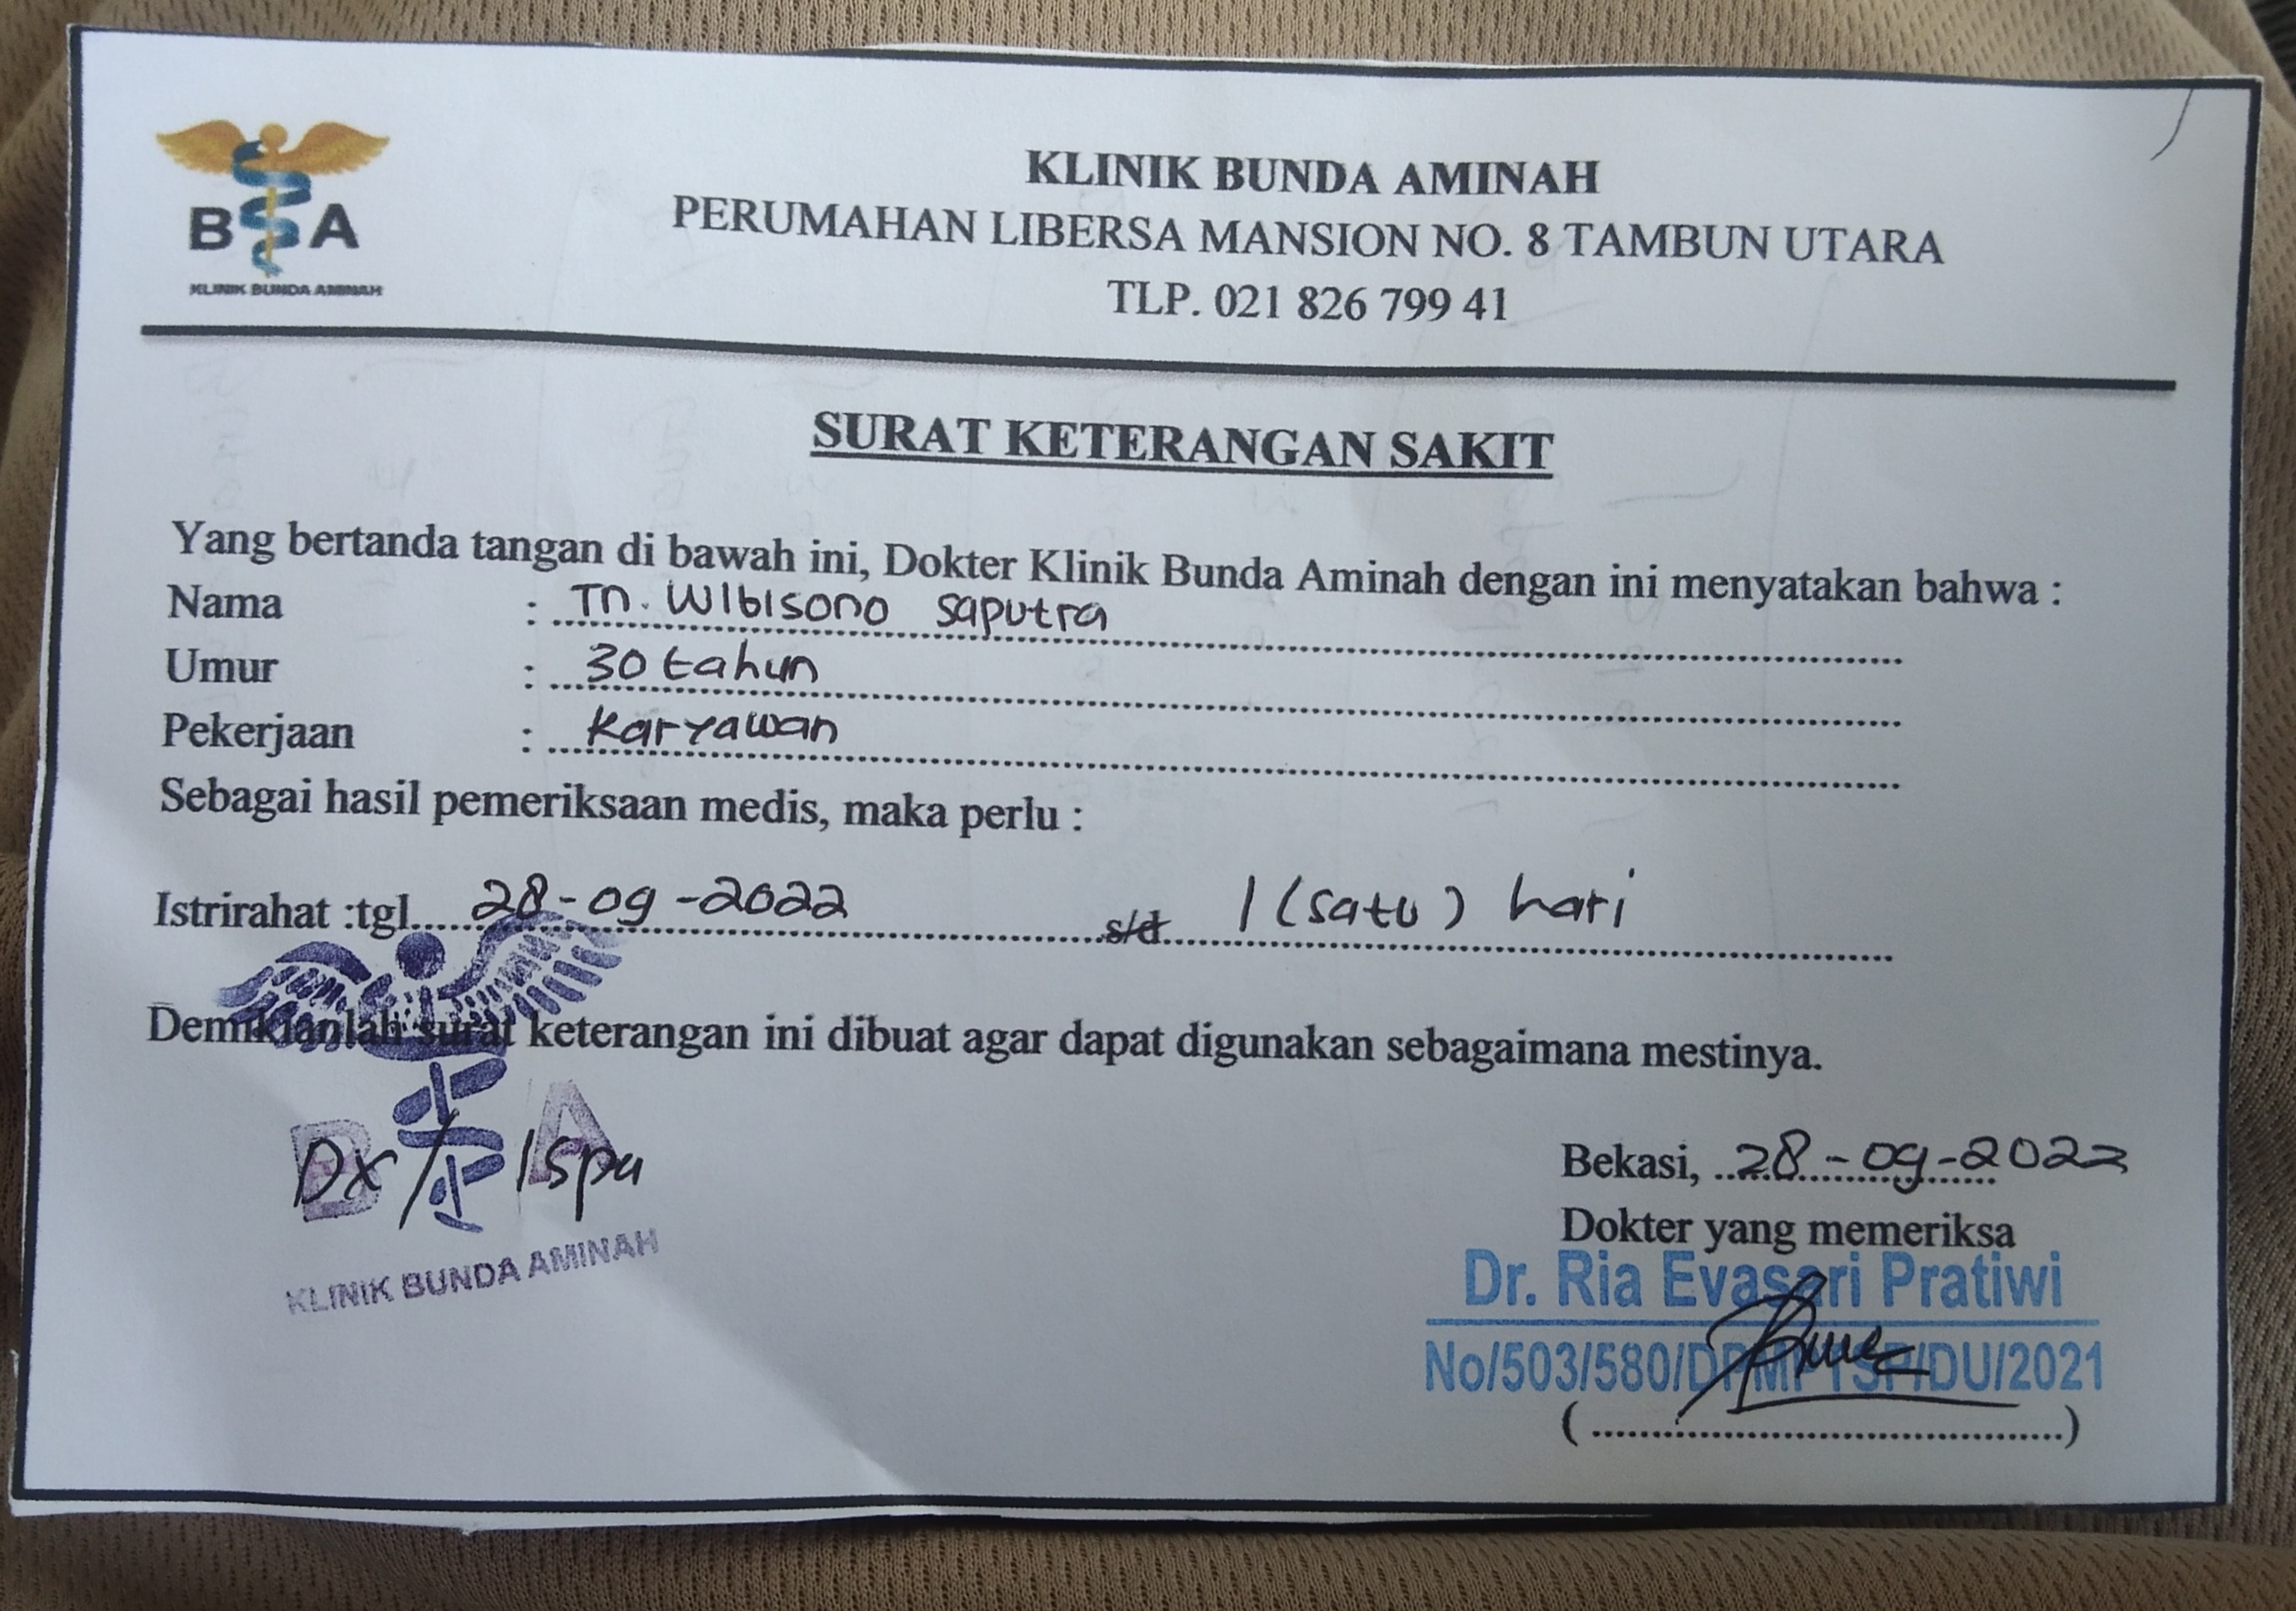 B A
KLINIK BUNDA AMINAH
KLINIK BUNDA AMINAH
PERUMAHAN LIBERSA MANSION NO. 8 TAMBUN UTARA
TLP. 021 826 799 41
SURAT KETERANGAN SAKIT
Yang bertanda tangan di bawah ini, Dokter Klinik Bunda Aminah dengan ini menyatakan bahwa :
Nama : Tn. Wibisono Saputra
Umur : 30 tahun
Pekerjaan : Karyawan
Sebagai hasil pemeriksaan medis, maka perlu :
Istrirahat :tgl.... 28-09-2022 s/d 1 (satu) hari
Demikianlah surat keterangan ini dibuat agar dapat digunakan sebagaimana mestinya.
B A
Dx / Ispa
KLINIK BUNDA AMINAH
Bekasi, 28-09-2022
Dokter yang memeriksa
Dr. Ria Evasari Pratiwi
No/503/580/DPMPTSP/DU/2021
(........................................)